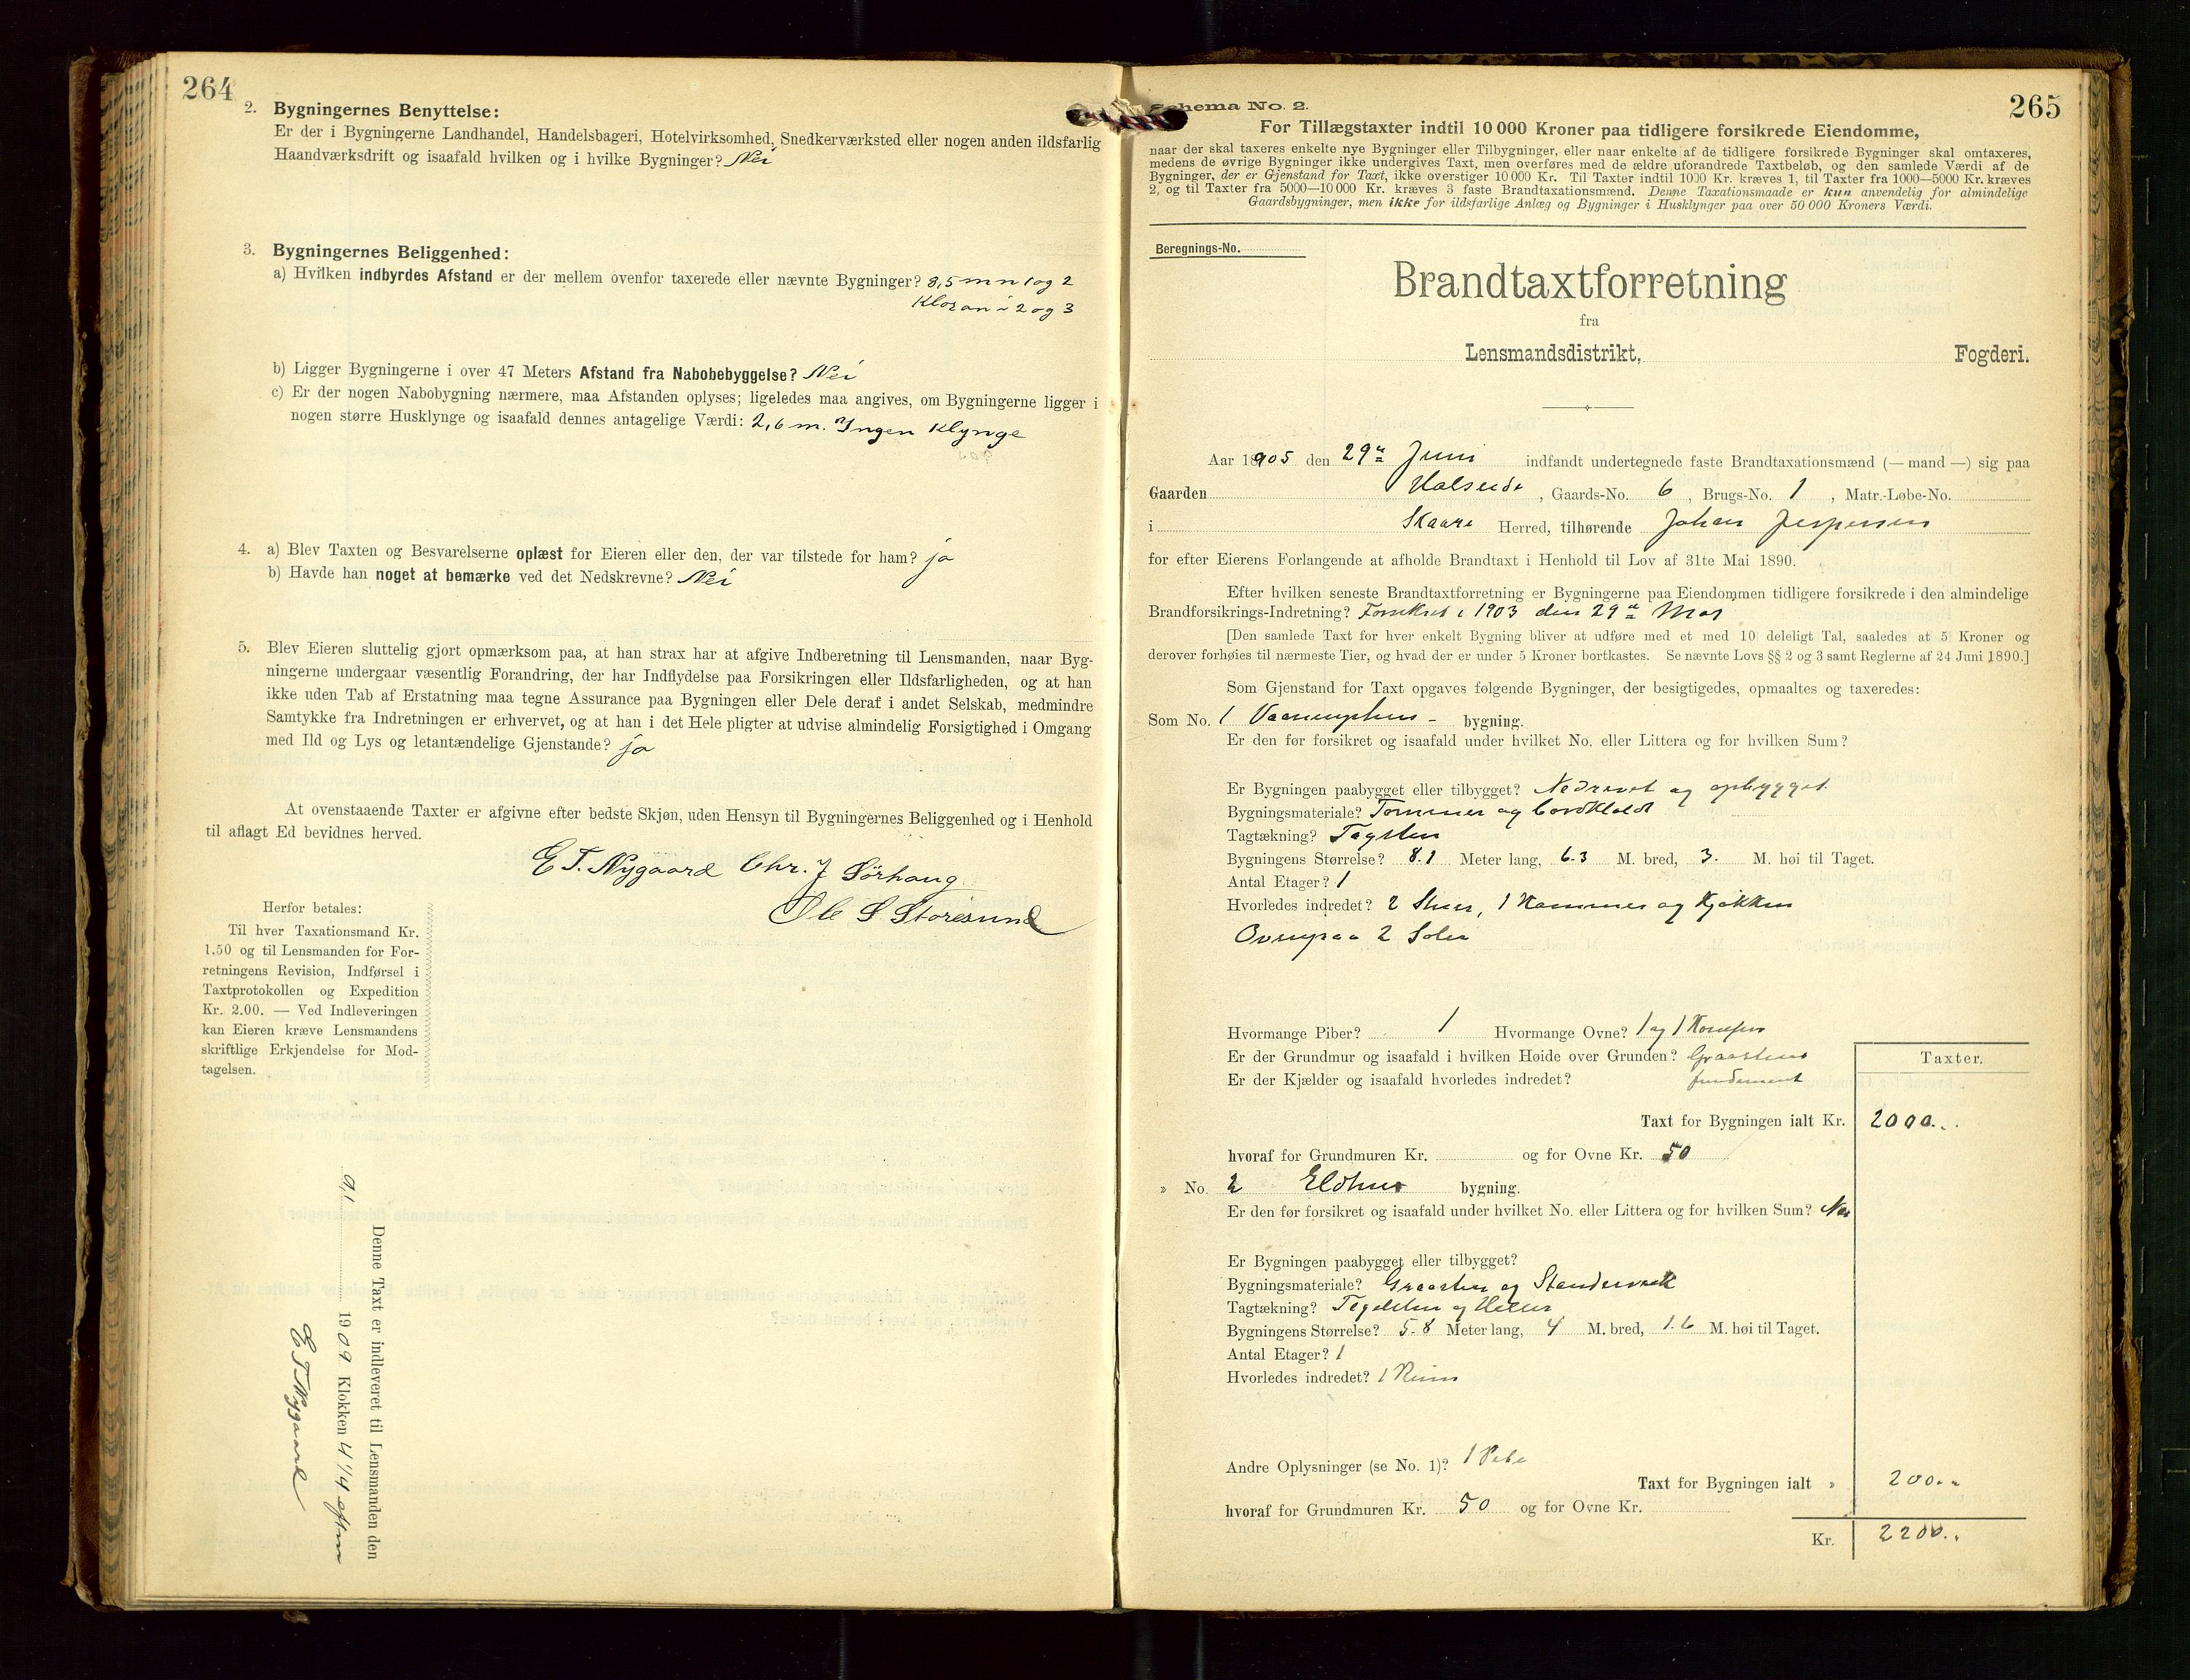 264
2. Bygningernes Benyttelse:
Er der i Bygningerne Landhandel, Handelsbageri, Hotelvirksomhed, Snedkerværksted eller nogen anden ildsfarlig
Haandværksdrift og isaafald hvilken og i hvilke Bygninger? Nei
3. Bygningernes Beliggenhed:
a) Hvilken indbyrdes Afstand er der mellem ovenfor taxerede eller nævnte Bygninger? 8,5 m n 1 og 2
2 og 3
b) Ligger Bygningerne i over 47 Meters Afstand fra Nabobebyggelse? Nei
c) Er der nogen Nabobygning nærmere, maa Afstanden oplyses; ligeledes maa angives, om Bygningerne ligger i
nogen større Husklynge og isaafald dennes antagelige Værdi: 2,6 m. Ingen Klynge
4. a) Blev Taxten og Besvarelserne oplæst for Eieren eller den, der var tilstede for ham? ja
b) Havde han noget at bemærke ved det Nedskrevne? Nei
5. Blev Eieren sluttelig gjort opmærksom paa, at han strax har at afgive Indberetning til Lensmanden, naar Byg-
ningerne undergaar væsentlig Forandring, der har Indflydelse paa Forsikringen eller Ildsfarligheden, og at han
ikke uden Tab af Erstatning maa tegne Assurance paa Bygningen eller Dele deraf i andet Selskab, medmindre
Samtykke fra Indretningen er erhvervet, og at han i det Hele pligter at udvise almindelig Forsigtighed i Omgang
med Ild og Lys og letantændelige Gjenstande? ja
At ovenstaaende Taxter er afgivne efter bedste Skjøn, uden Hensyn til Bygningernes Beliggenhed og i Henhold
til aflagt Ed bevidnes herved.
E. T. Nygaard Chr. J Sörhaug
Ole S Storesund
Herfor betales:
Til hver Taxationsmand Kr.
1.50 og til Lensmanden for For-
retningens Revision, Indførsel i
Taxtprotokollen og Expedition
Kr. 2.00. — Ved Indleveringen
kan Eieren kræve Lensmandens
skriftlige Erkjendelse for Mod-
tagelsen.
Denne Taxt er indleveret til Lensmanden den
9/1 1909 Klokken 4 1/4 eftm
E T Nygaard
265
Schema No. 2.
For Tillægstaxter indtil 10 000 Kroner paa tidligere forsikrede Eiendomme,
naar der skal taxeres enkelte nye Bygninger eller Tilbygninger, eller naar enkelte af de tidligere forsikrede Bygninger skal omtaxeres,
medens de øvrige Bygninger ikke undergives Taxt, men overføres med de ældre uforandrede Taxtbeløb, og den samlede Værdi af de
Bygninger, der er Gjenstand for Taxt, ikke overstiger 10 000 Kr. Til Taxter indtil 1000 Kr. kræves 1, til Taxter fra 1000—5000 Kr. kræves
2, og til Taxter fra 5000—10 000 Kr. kræves 3 faste Brandtaxationsmænd. Denne Taxationsmaade er kun anvendelig for almindelige
Gaardsbygninger, men ikke for ildsfarlige Anlæg og Bygninger i Husklynger paa over 50 000 Kroners Værdi.
Beregnings-No.
Brandtaxtforretning
fra
Lensmandsdistrikt, Fogderi.
Aar 1905 den 29de Juni indfandt undertegnede faste Brandtaxationsmænd (— mand —) sig paa
Gaarden Halseide, Gaards-No. 6, Brugs-No. 1, Matr.-Løbe-No.
i Skaare Herred, tilhørende Johan Jespersen
for efter Eierens Forlangende at afholde Brandtaxt i Henhold til Lov af 31te Mai 1890.
Efter hvilken seneste Brandtaxtforretning er Bygningerne paa Eiendommen tidligere forsikrede i den almindelige
Brandforsikrings-Indretning? Forsikret i 1903 den 29de Mai
[Den samlede Taxt for hver enkelt Bygning bliver at udføre med et med 10 deleligt Tal, saaledes at 5 Kroner og
derover forhøies til nærmeste Tier, og hvad der er under 5 Kroner bortkastes. Se nævnte Lovs §§ 2 og 3 samt Reglerne af 24 Juni 1890.]
Som Gjenstand for Taxt opgaves følgende Bygninger, der besigtigedes, opmaaltes og taxeredes:
Som No. 1 Vaaningshus- bygning.
Er den før forsikret og isaafald under hvilket No. eller Littera og for hvilken Sum?
Er Bygningen paabygget eller tilbygget? Nedrevet og opbygget
Bygningsmateriale? Tömmer og bordklædt
Tagtækning? Tagsten
Bygningens Størrelse? 8.1 Meter lang, 6.3 M. bred, 3. M. høi til Taget.
Antal Etager? 1
Hvorledes indredet? 2 Stuer, 1 Kammer og Kjøkken
Ovenpaa 2 Soler
Hvormange Piber? 1 Hvormange Ovne? 1 og 1 Komfur
Er der Grundmur og isaafald i hvilken Høide over Grunden? Graastens
Er der Kjælder og isaafald hvorledes indredet? fundament
Taxter.
Taxt for Bygningen ialt Kr. 2000..
hvoraf for Grundmuren Kr. og for Ovne Kr. 50
» No. 2 Eldhus bygning.
Er den før forsikret og isaafald under hvilket No. eller Littera og for hvilken Sum? Nei
Er Bygningen paabygget eller tilbygget?
Bygningsmateriale? Graasten og Stenderverk
Tagtækning? Teglsten og Heller
Bygningens Størrelse? 5.8 Meter lang, 4 M. bred, 1.6 M. høi til Taget.
Antal Etager? 1
Hvorledes indredet? 1 Rum
Andre Oplysninger (se No. 1)? 1 Pibe
Taxt for Bygningen ialt » 200..
hvoraf for Grundmuren Kr. 50 og for Ovne Kr.
Kr. 2200..